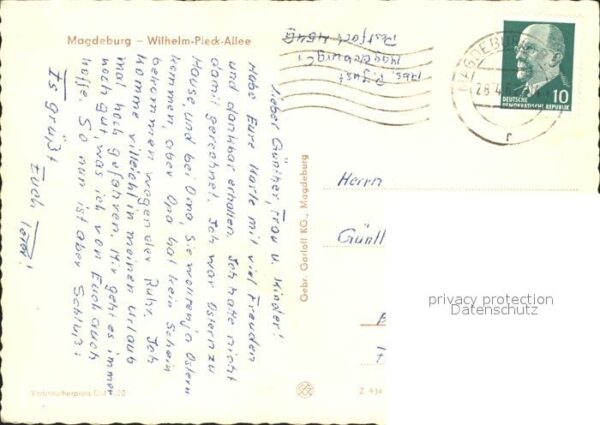 Magdeburg – Wilhelm-Pieck-Allee
Abs. P. Just
Magdeburg C1
Postfach 4646
MAGDEBURG
28.4.6
DEUTSCHE
DEMOKRATISCHE REPUBLIK
10
r
Lieber Günther, Frau u. Kinder!
Habe Eure Karte mit viel Freuden
und dankbar erhalten. Ich hatte nicht
damit gerechnet. Ich war Ostern zu
Hause und bei Oma, Sie wollten ja Ostern
kommen, aber Opa hat kein Schein
bekommen wegen der Ruhr. Ich
komme villeicht in meinen Urlaub
mal hoch gefahren. Mir geht es immer
noch gut, was ich von Euch auch
hoffe. So nun ist aber Schluß!
Es grüßt Euch
Peter!
Gebr. Garloff KG., Magdeburg
Herrn
Günth
privacy protection
Datenschutz
Verbraucherpreis DM 0,20
Z 934